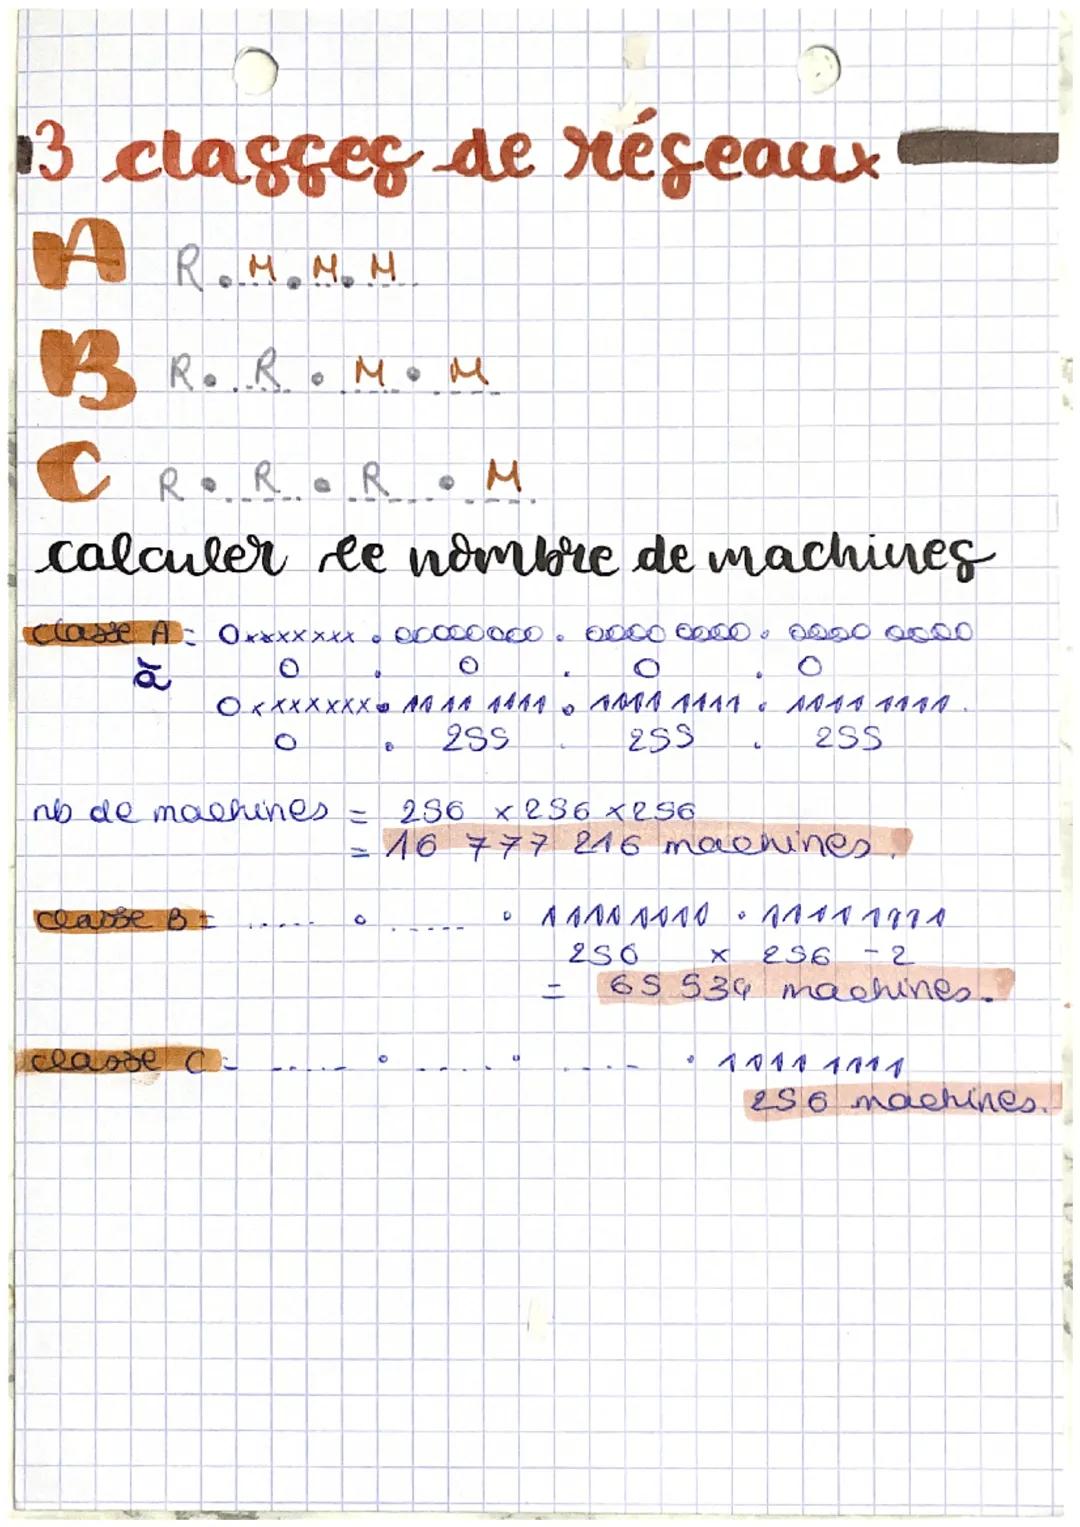 3 classes de réseaux
A R.M.M.M
B R.R.M.M
C R.R.R.M
calculer le nombre de machines
classe A = 0xxxxxxx . 00000000 . 0000 0000 . 0000 0000
à 0 . 0 . 0 . 0
0xxxxxxx . 1111 1111 . 1111 1111 . 1111 1111.
0 . 255 . 255 . 255
nb de machines = 256 x 256 x 256
= 16 777 216 machines.
classe B = ..... . ..... . 1111 1111 . 1111 1111
256 x 256 - 2
= 65 534 machines.
classe C = ..... . ..... . ..... . 1111 1111
256 machines.